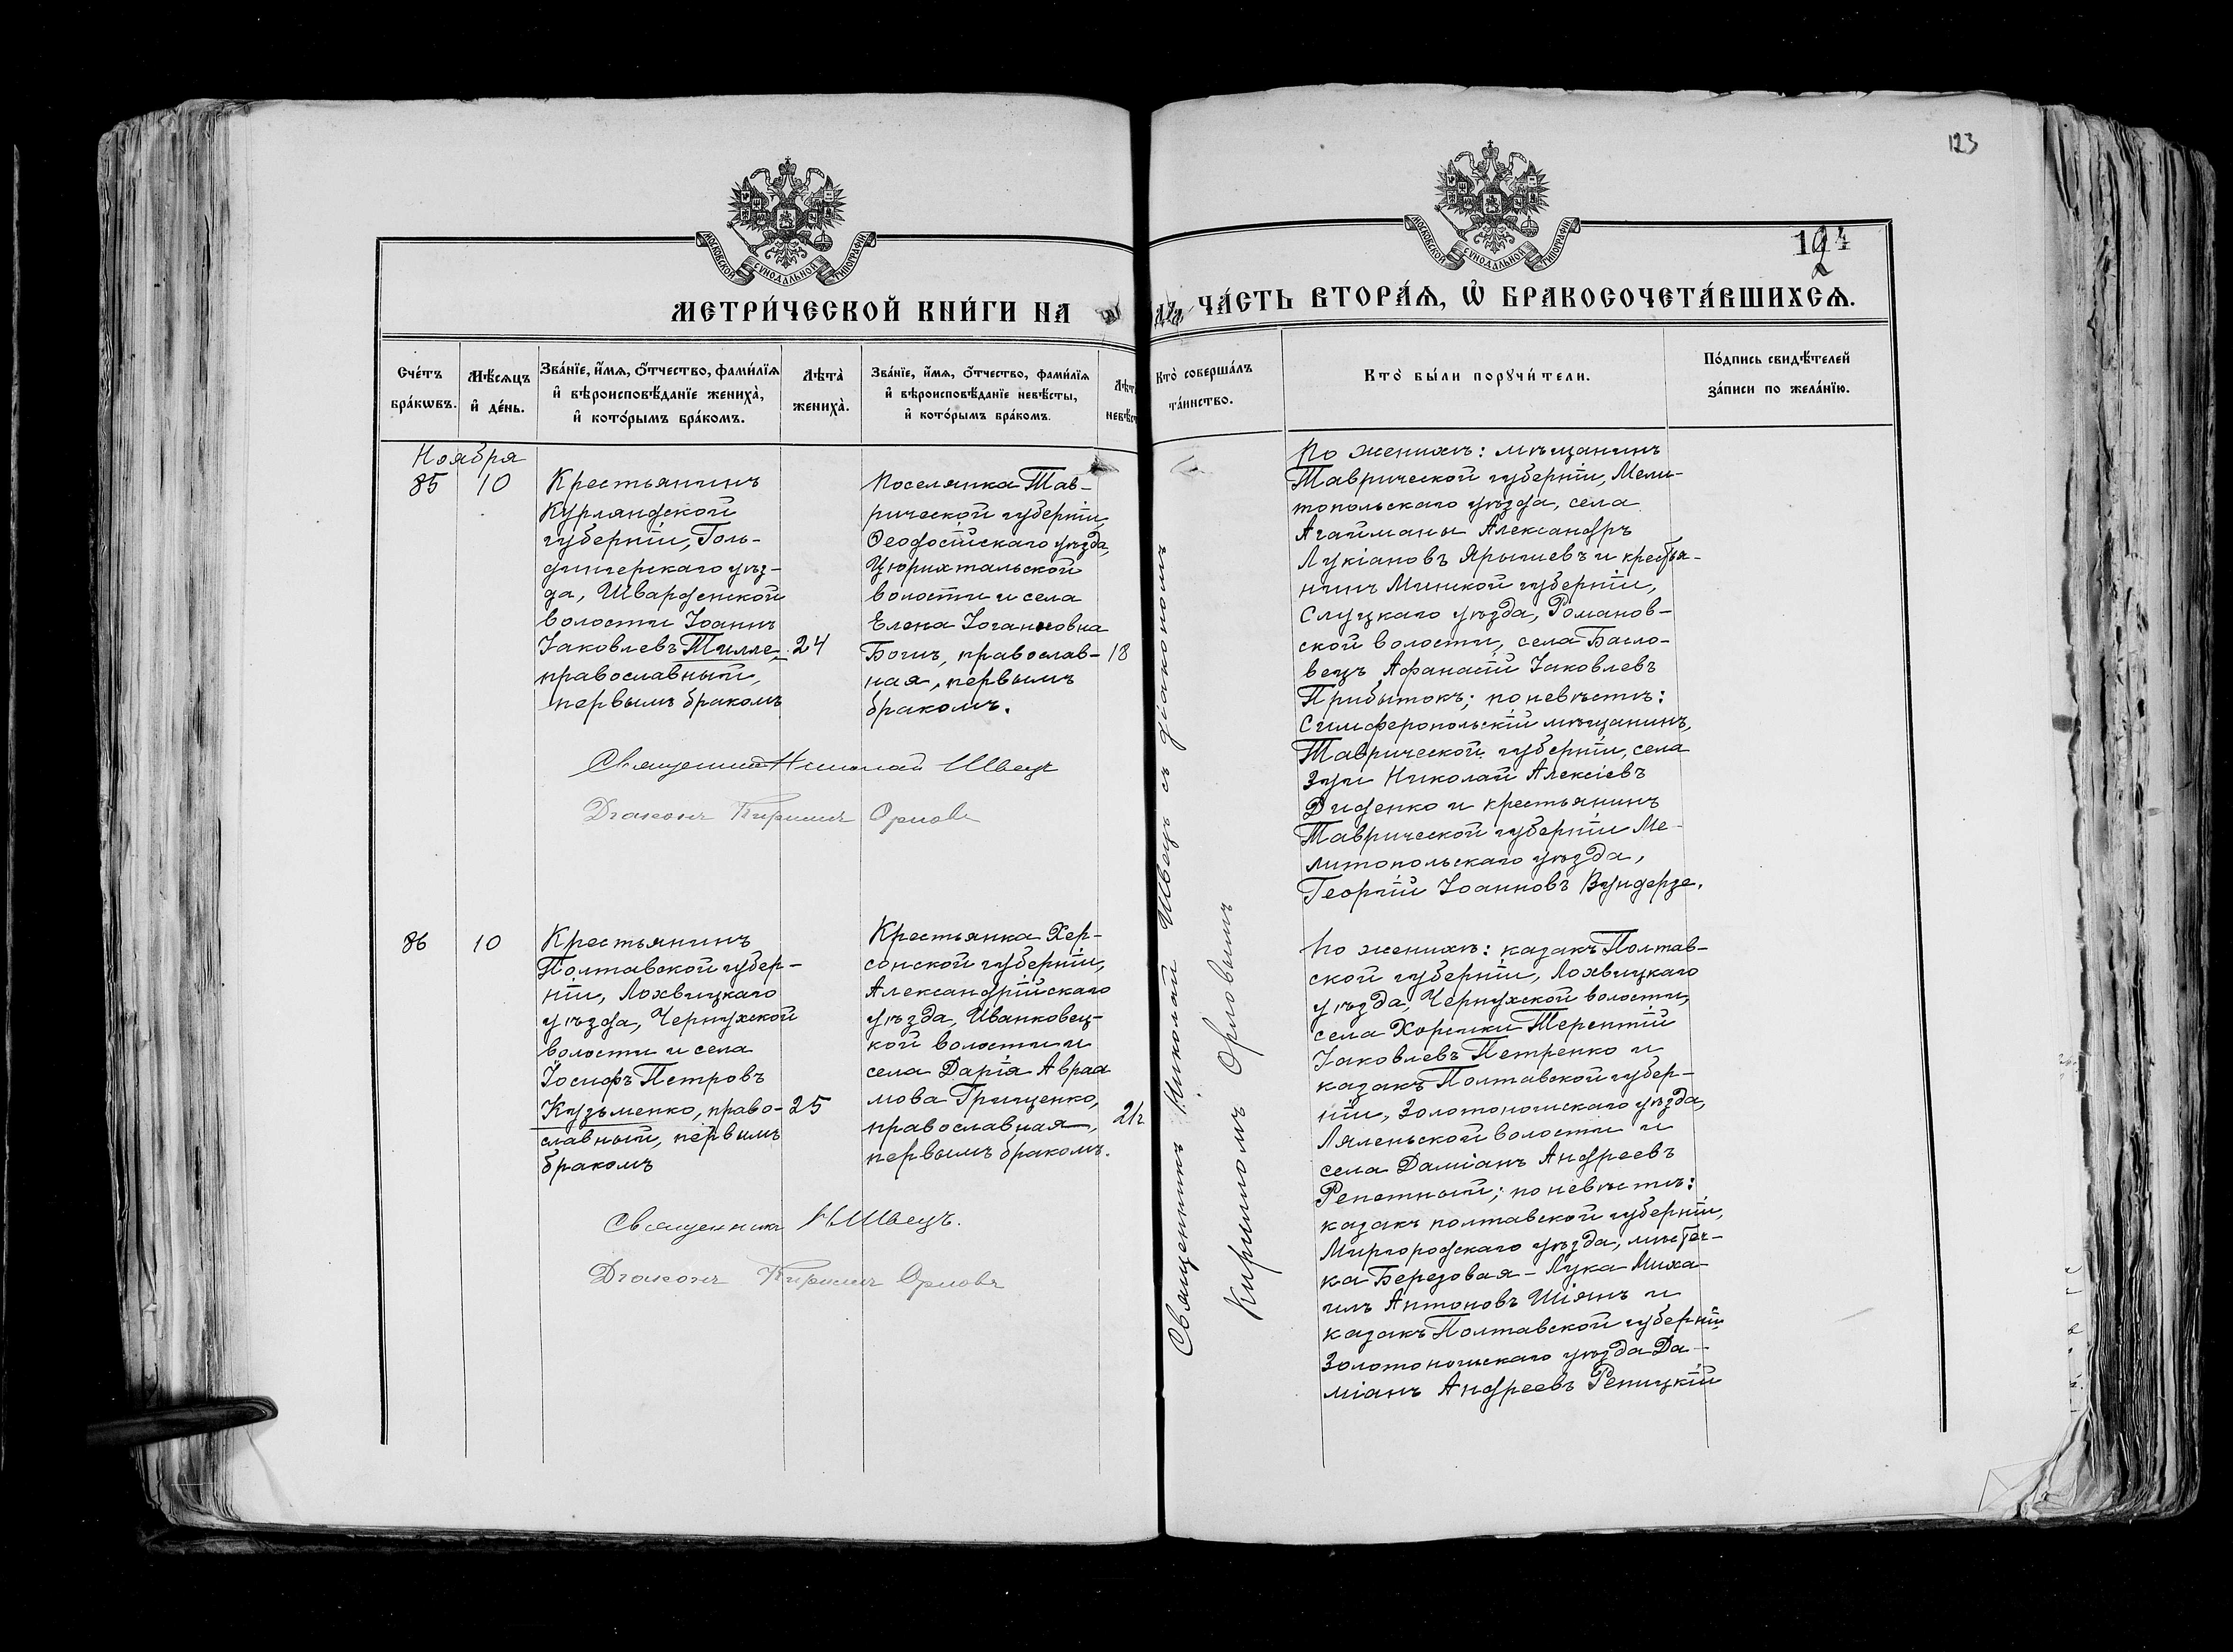 123
124
МОСКОВСКОЙ СѴНОДАЛЬНОЙ ТИПОГРАФІИ
МОСКОВСКОЙ СѴНОДАЛЬНОЙ ТИПОГРАФІИ
МЕТРИ́ЧЕСКОЙ КНИ́ГИ НА
ЧА́СТЬ ВТОРА́Ѧ, Ѽ БРАКОСОЧЕТА́ВШИХСѦ.
Сче́тъ бра́кѡвъ.
Мѣ́сѧцъ и҆ де́нь.
Зва́нїе, и҆́мѧ, ѻ҆́тчество, фами́лїѧ и҆ вѣроисповѣ́данїе жениха̀, и҆ кото́рымъ бра́комъ.
Лѣта̀ жениха̀.
Зва́нїе, и҆́мѧ, ѻ҆́тчество, фами́лїѧ и҆ вѣроисповѣ́данїе невѣ́сты, и҆ кото́рымъ бра́комъ.
Лѣта̀ невѣ́ст
Кто̀ соверша́лъ та́инство.
Кто̀ бы́ли порꙋчи́тели.
По́дпись свидѣ́телей за́писи по жела́нїю.
Ноября
85
10
Крестьянинъ
Курляндской
губерніи, Голь-
дингерскаго уѣз-
да, Шварденской
волости Іоаннъ
Іаковлевъ Тилле,
православный,
первымъ бракомъ
24
Поселянка Тав-
рической губерніи,
Ѳеодосійскаго уѣзда,
Цюрихтальской
волости и села
Елена Іоганновна
Богиъ, православ-
ная, первымъ
бракомъ.
18
Священникъ Николай Швецъ
Діаконъ Кириллъ Орловъ
Священникъ Николай Швецъ съ діакономъ
Кирилломъ Орловымъ
По женихѣ: мѣщанинъ
Таврической губерніи, Мели-
топольскаго уѣзда, села
Агайманы Александръ
Лукіановъ Ярышевъ и крестья-
нинъ Минской губерніи,
Слуцкаго уѣзда, Романов-
ской волости, села Басло-
вецъ Аѳанасій Іаковлевъ
Прибытокъ; по невѣстѣ:
Симферопольскій мѣщанинъ,
Таврической губерніи, села
Зуи Николай Алексіевъ
Диденко и крестьянинъ
Таврической губерніи Ме-
литопольскаго уѣзда,
Георгій Іоанновъ Вундерзе.
86
10
Крестьянинъ
Полтавской губер-
ніи, Лохвицкаго
уѣзда, Чернухской
волости и села
Іосифъ Петровъ
Кузьменко, право-
славный, первымъ
бракомъ
25
Крестьянка Хер-
сонской губерніи,
Александрійскаго
уѣзда, Иванковец-
кой волости и
села Дарія Авраа
мова Грищенко,
православная,
первымъ бракомъ.
Священникъ Н Швецъ.
Діаконъ Кириллъ Орловъ
По женихѣ: казакъ Полтав-
ской губерніи, Лохвицкаго
уѣзда, Чернухской волости,
села Хорошки Терентій
Іаковлевъ Петренко и
казакъ Полтавской губер-
ніи, Золотоношскаго уѣзда,
Ляленьской волости и
села Даміанъ Андреевъ
Репетный; по невѣстѣ:
казакъ полтавской губерніи,
Миргородскаго уѣзда, мѣстеч-
ка Березовая-Лука Миха-
илъ Антоновъ Шіянъ и
казакъ Полтавской губерніи
Золотоношскаго уѣзда Да-
міанъ Андреевъ Репицкій